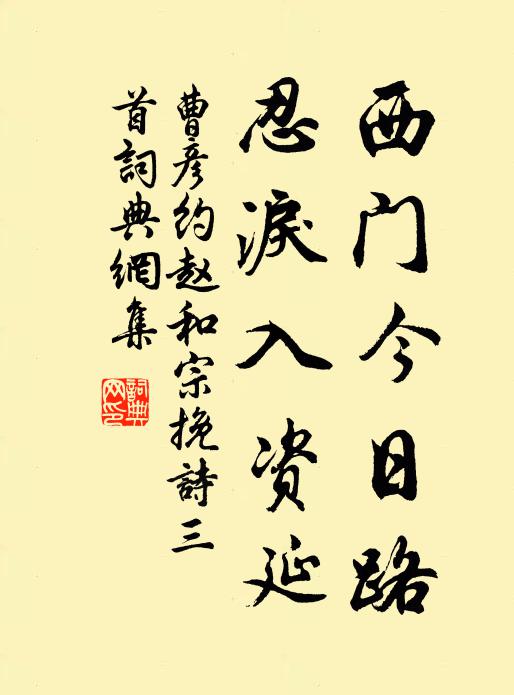 西门今日路
忍淚入资延
曹彦约赵和宗挽詩三
首詞典網集
詞典网印